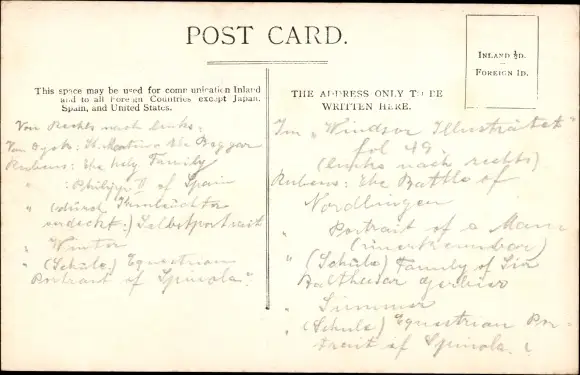 POST CARD.
INLAND ½D.
FOREIGN 1D.
This space may be used for communication Inland
and to all Foreign Countries except Japan,
Spain, and United States.
THE ADDRESS ONLY TO BE
WRITTEN HERE.
Von Rechts nach links:
Van Dyck: St. Martin & the Beggar
Rubens: The Holy Family
" : Philipp II of Spain
" (durch
verdeckt:) Selbstportrait
" Winter
" (Schule:) Equestrian
Portrait of Spinola.
Im „Windsor Illustrated"
fol 49.
(links nach rechts)
Rubens: The Battle of
Nordlingen
" Portrait of a Man
"
" (Schule) Family of Sir
Balthasar Gerbier
" Summer
" (Schule) Equestrian Por-
trait of Spinola.